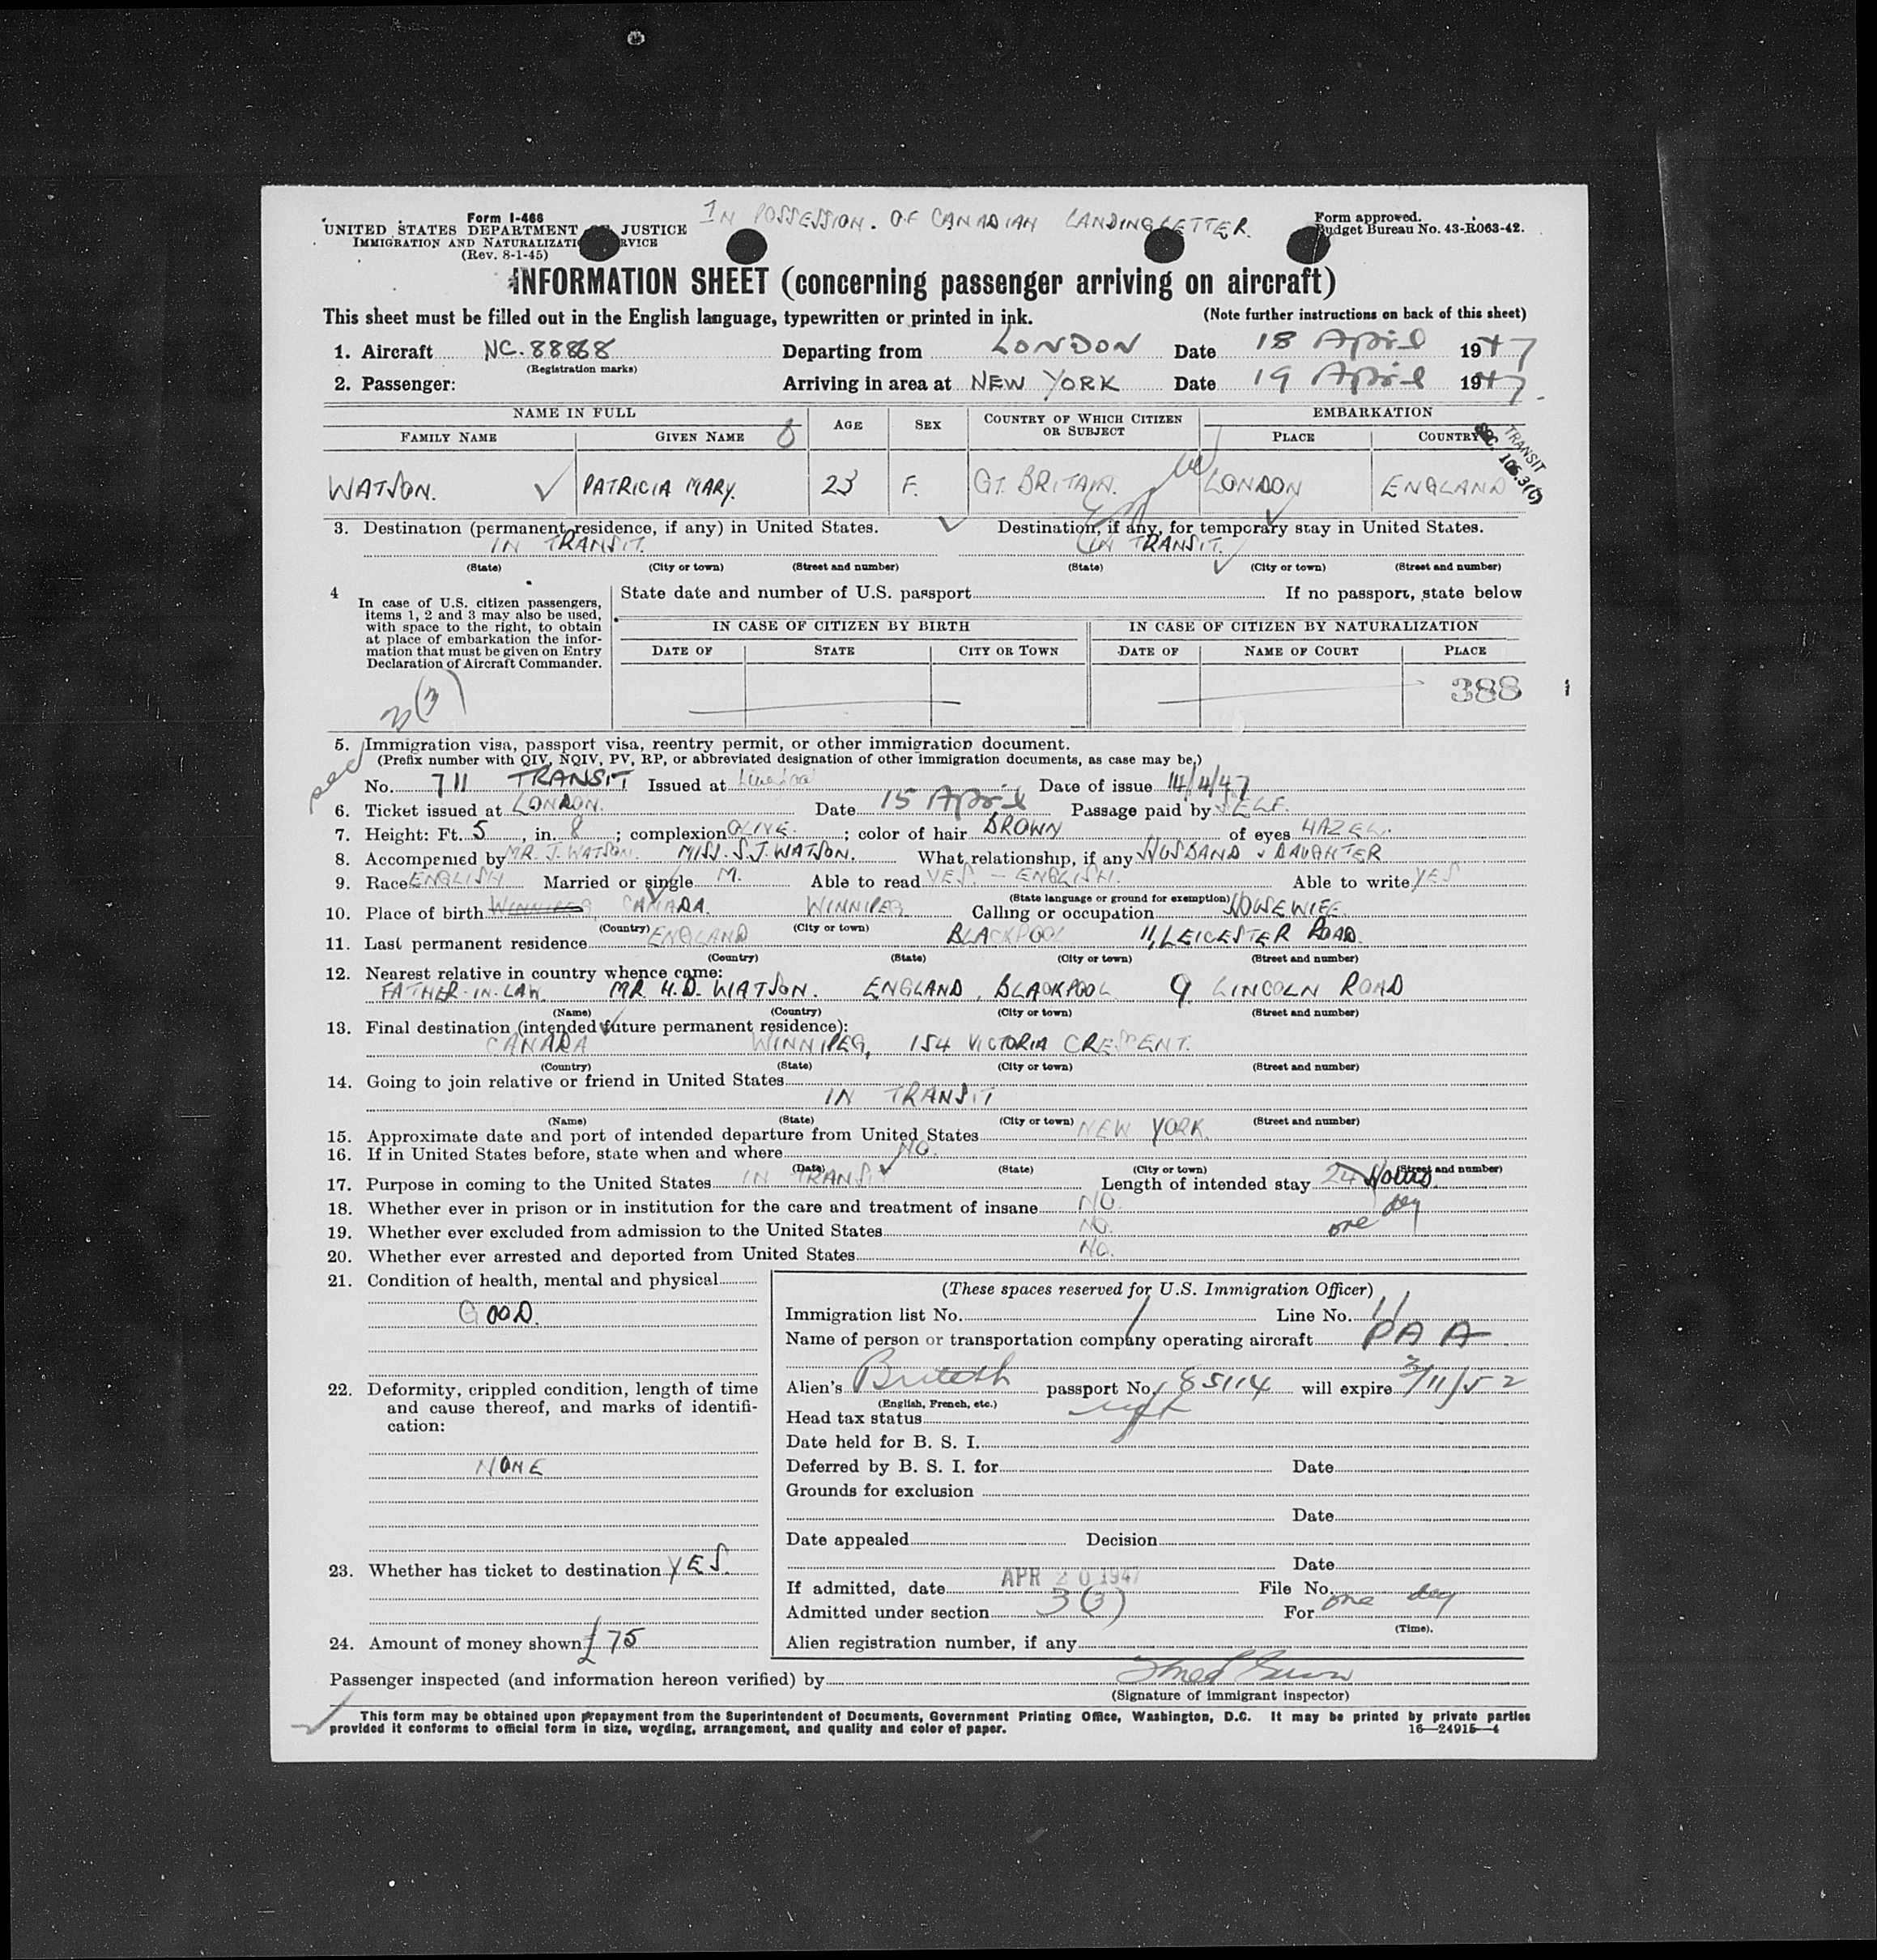 IN POSSESSION. OF CANADIAN LANDING LETTER.
Form I-466
UNITED STATES DEPARTMENT JUSTICE
IMMIGRATION AND NATURALIZATI RVICE
(Rev. 8-1-45)
Form approved.
Budget Bureau No. 43-R063-42.
INFORMATION SHEET (concerning passenger arriving on aircraft)
This sheet must be filled out in the English language, typewritten or printed in ink. (Note further instructions on back of this sheet)
1. Aircraft NC. 88868 Departing from LONDON Date 18 April 1947
(Registration marks)
2. Passenger: Arriving in area at NEW YORK Date 19 April 1947
NAME IN FULL AGE SEX COUNTRY OF WHICH CITIZEN OR SUBJECT EMBARKATION
FAMILY NAME GIVEN NAME PLACE COUNTRY
TRANSIT
SEC. 105.3(c)
WATSON. PATRICIA MARY. 23 F. GT. BRITAIN. LONDON ENGLAND
3. Destination (permanent residence, if any) in United States. Destination, if any, for temporary stay in United States.
IN TRANSIT. IN TRANSIT.
(State) (City or town) (Street and number) (State) (City or town) (Street and number)
4 In case of U.S. citizen passengers, items 1, 2 and 3 may also be used, with space to the right, to obtain at place of embarkation the information that must be given on Entry Declaration of Aircraft Commander.
State date and number of U.S. passport If no passport, state below
IN CASE OF CITIZEN BY BIRTH IN CASE OF CITIZEN BY NATURALIZATION
DATE OF STATE CITY OR TOWN DATE OF NAME OF COURT PLACE
388
3(3)
5. Immigration visa, passport visa, reentry permit, or other immigration document.
(Prefix number with QIV, NQIV, PV, RP, or abbreviated designation of other immigration documents, as case may be.)
No. 711 TRANSIT Issued at Liverpool Date of issue 14/4/47
6. Ticket issued at LONDON. Date 15 April Passage paid by SELF.
7. Height: Ft. 5, in. 8; complexion OLIVE.; color of hair BROWN of eyes HAZEL.
8. Accompanied by MR. J. WATSON. MISS. S.J. WATSON. What relationship, if any HUSBAND & DAUGHTER
9. Race ENGLISH Married or single M. Able to read YES. - ENGLISH. Able to write YES
(State language or ground for exemption)
10. Place of birth WINNIPEG, CANADA. WINNIPEG Calling or occupation HOUSEWIFE.
(Country) (City or town)
11. Last permanent residence ENGLAND BLACKPOOL 11, LEICESTER ROAD.
(Country) (State) (City or town) (Street and number)
12. Nearest relative in country whence came:
FATHER-IN-LAW. MR. H.D. WATSON. ENGLAND, BLACKPOOL 9 LINCOLN ROAD
(Name) (Country) (City or town) (Street and number)
13. Final destination (intended future permanent residence):
CANADA WINNIPEG, 154 VICTORIA CRESENT.
(Country) (State) (City or town) (Street and number)
14. Going to join relative or friend in United States
IN TRANSIT
(Name) (State) (City or town) (Street and number)
15. Approximate date and port of intended departure from United States NEW YORK.
16. If in United States before, state when and where NO.
(Date) (State) (City or town) (Street and number)
17. Purpose in coming to the United States IN TRANSIT Length of intended stay 24 Hours.
one day
18. Whether ever in prison or in institution for the care and treatment of insane NO.
19. Whether ever excluded from admission to the United States NO.
20. Whether ever arrested and deported from United States NO.
21. Condition of health, mental and physical
GOOD.
22. Deformity, crippled condition, length of time and cause thereof, and marks of identification:
NONE
23. Whether has ticket to destination YES.
24. Amount of money shown £75
(These spaces reserved for U.S. Immigration Officer)
Immigration list No. 1 Line No. 11
Name of person or transportation company operating aircraft PAA
Alien's British passport No. 85114 will expire 3/11/52
(English, French, etc.)
Head tax status
Date held for B. S. I.
Deferred by B. S. I. for Date
Grounds for exclusion
Date
Date appealed Decision
Date
If admitted, date APR 20 1947 File No.
Admitted under section 3(3) For one day
(Time).
Alien registration number, if any
Passenger inspected (and information hereon verified) by
(Signature of immigrant inspector)
This form may be obtained upon prepayment from the Superintendent of Documents, Government Printing Office, Washington, D.C. It may be printed by private parties
provided it conforms to official form in size, wording, arrangement, and quality and color of paper. 16—24915-4